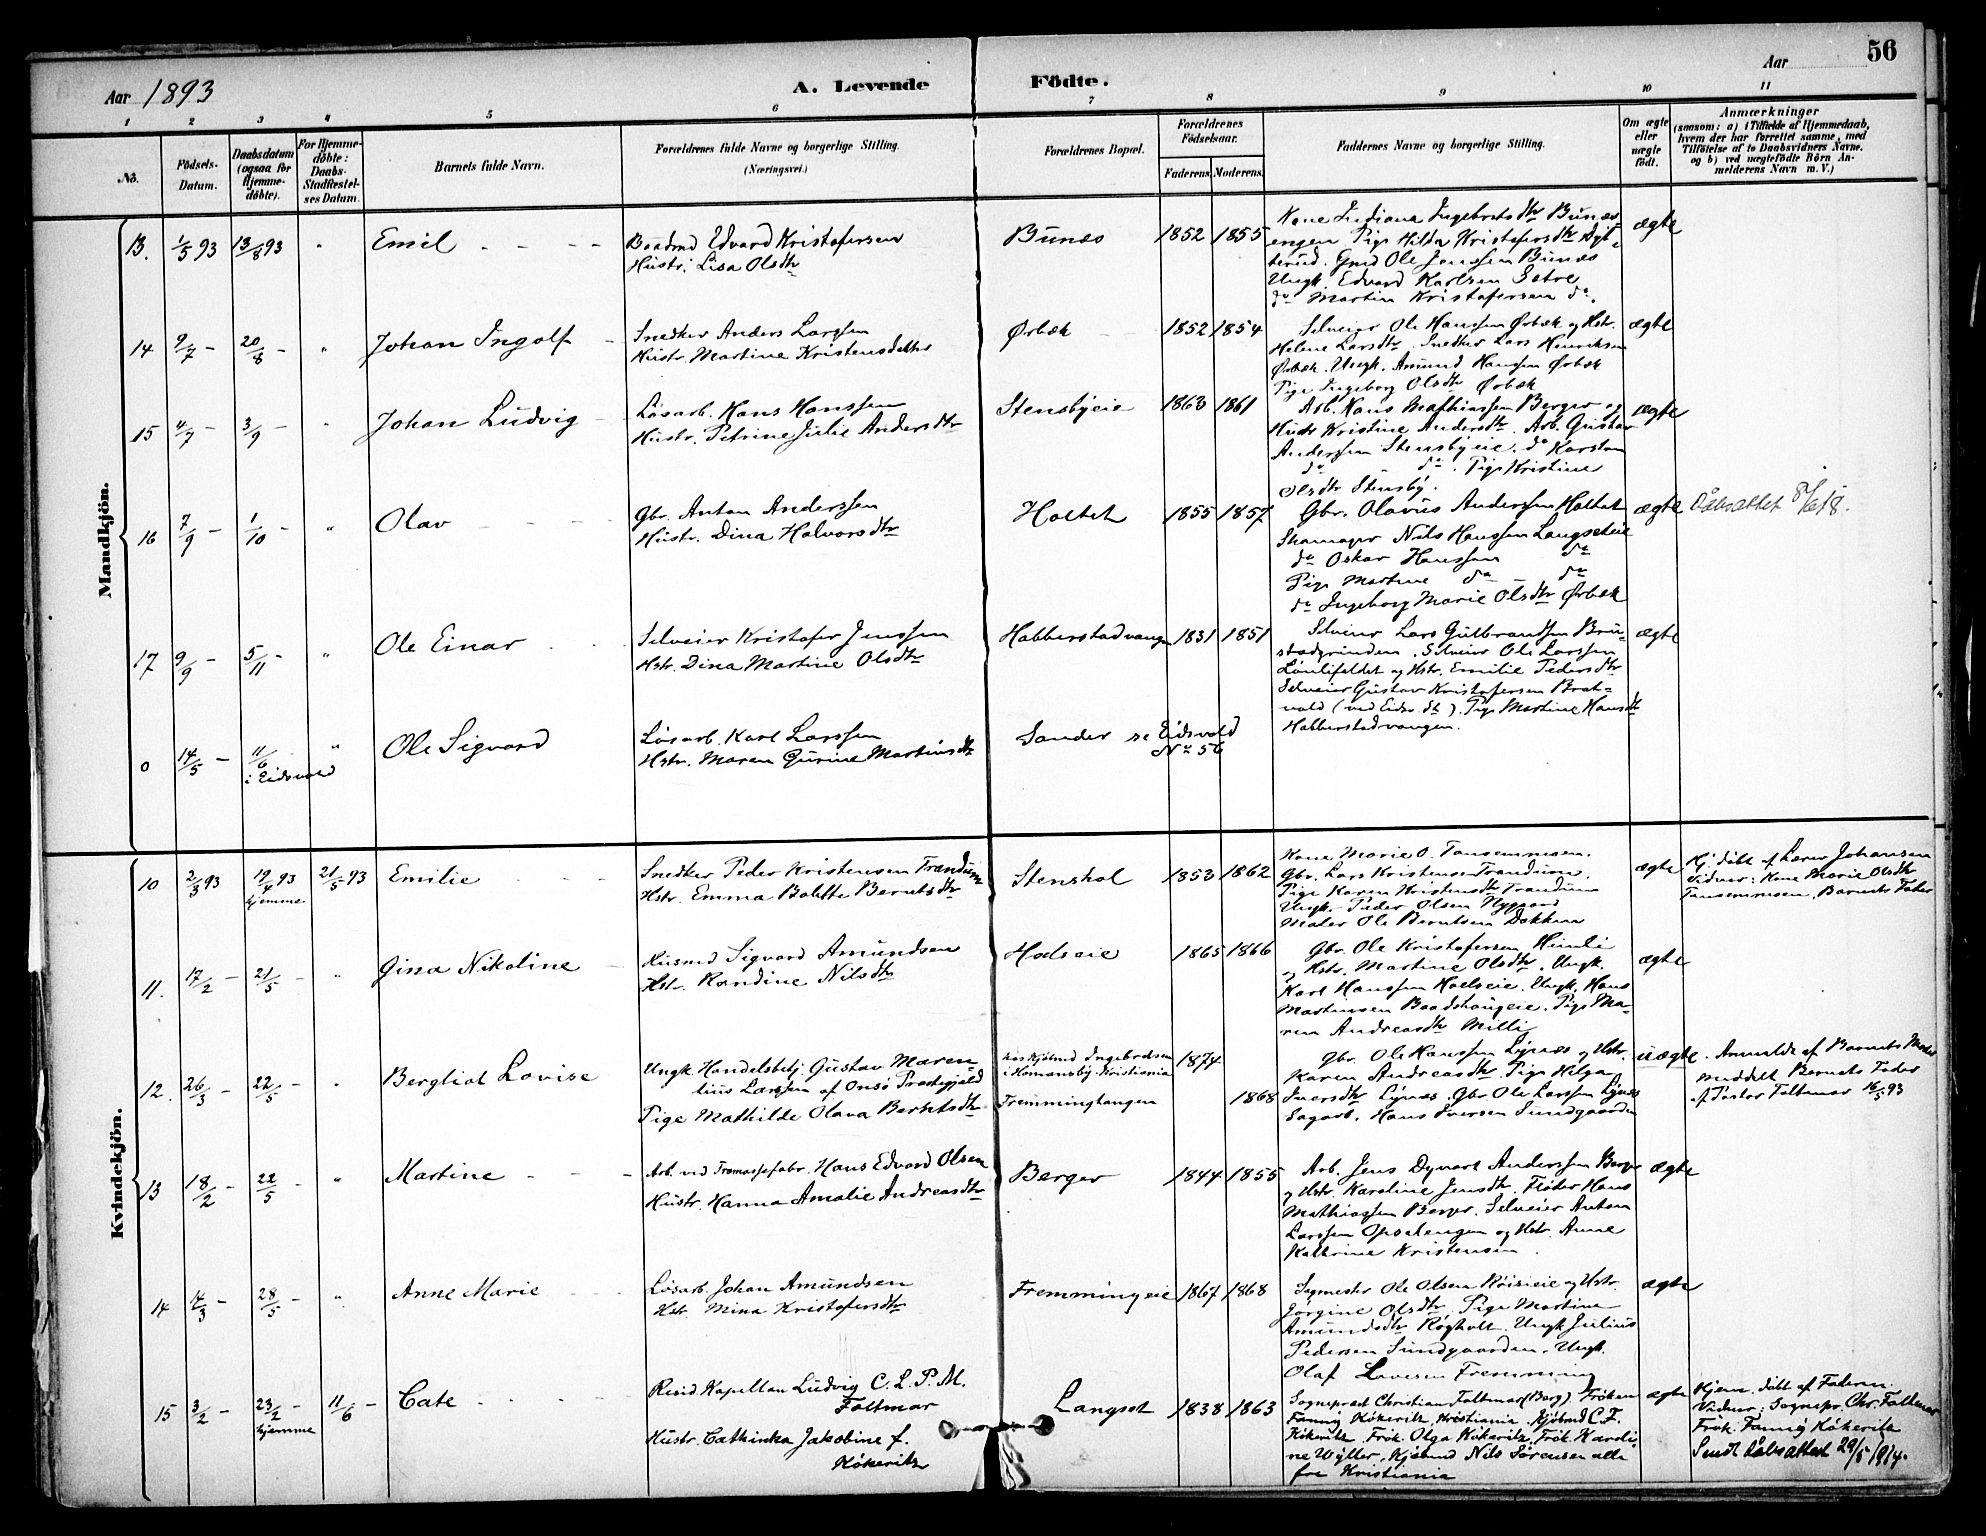 56
Aar 1893
A. Levende Födte.
Aar
1 2 3 4 5 6 7 8 9 10 11
No.
Födsels-Datum.
Daabsdatum (ogsaa for Hjemme-döbte).
For Hjemme-döbte: Daabs-Stadfæstel-ses Datum.
Barnets fulde Navn.
Forældrenes fulde Navne og borgerlige Stilling.
(Næringsvei.)
Forældrenes Bopæl.
Forældrenes Födselsaar.
Faderens. Moderens.
Faddernes Navne og borgerlige Stilling.
Om ægte eller uægte födt.
Anmærkninger
(saasom: a) i Tilfælde af Hjemmedaab, hvem der har forrettet samme, med Tilföielse af to Daabsvidners Navne. og b) ved uægtefödte Börn An-melderens Navn m. V.)
Mandkjön.
13. 1/5 93 13/8 93 " Emil
Edvard Kristofersen
Hustr. Lisa Olsdtr
Bunæs 1852 1855
Kone Indiana Ingebretsdtr Bunæs
engen Pige Hilda Kristofersdtr
Gmd Ole Jenssen Bunæs
Ungk. Edvard Karlsen Setre
do Martin Kristofersen do.
ægte
14 9/7 - 20/8 - " Johan Ingolf
Snedker Anders Larssen
Hustr. Martine Kristensdatter
Ørbæk 1852 1854
Selveier Ole Hanssen Ørbæk og Hstr.
Helene Larsdtr. Snedker Lars Henriksen
Ørbæk. Ungk. Amund Hanssen Ørbæk
Pige Ingeborg Olsdtr Ørbæk
ægte
15 4/7 - 3/9 - " Johan Ludvig
Løsarb. Hans Hanssen
Hustr. Petrine Julie Andersdtr
Stensbyeie 1863 1861
Arb. Hans Mathiassen Berger og
Hustr Kristine Andersdtr. Arb. Gustav
Anderssen Stensbyeie. do Karsten
do do. Pige Kristine
Olsdtr Stensby.
ægte
16 7/9 - 1/10 - " Olav
Gbr. Anton Anderssen
Hustr. Dina Halvorsdtr
Holtet 1855 1857
Gbr. Olavus Anderssen Holtet
Skomager Nils Hanssen Langseteie
do Oskar Hanssen do
Pige Martine do - do
do Ingeborg Marie Olsdtr Ørbæk
ægte
Dåbsattet
17 9/9 - 5/11 - " Ole Einar
Selveier Kristofer Jenssen
Hstr. Dina Martine Olsdtr
Habberstadvangen 1831 1851
Selveier Lars Gulbrandsen Bru-
stadgrinden. Selveier Ole Larssen
Lønlifeldet og Hstr. Emilie Pedersdtr
Selveier Gustav Kristofersen Brat-
vold (ved Eidsv. St). Pige Martine Hansdtr
Habberstadvangen.
ægte
0 14/5 11/6 i Eidsvold " Ole Sigvard
Løsarb. Karl Larssen
Hstr. Maren Gurine Martinsdtr
Sander se Eidsvold
No 56
Kvindekjön.
10 2/3 93 19/4 93 hjemme 21/5 93 Emilie
Snedker Peder Kristensen Trandum
Hstr. Emma Bolette Berntsdtr
Stenshol 1853 1862
Kone Marie O. Tansemmoen.
Gbr. Lars Kristensen Trandum.
Pige Karen Kristensdtr Trandum
Ungk. Peder Olsen Nygaard
Maler Ole Berntsen Dokken
ægte
Hj. døbt af Lærer Johansen
Vidner: Kone Marie Olsdtr
Tansemmoen, Barnets Fader
11. 17/2 - 21/5 - " Gina Nikoline
Husmd Sigvard Amundsen
Hstr. Randine Nilsdtr
Holseie 1865 1866
Gbr. Ole Kristofersen Heimli
og Hstr. Martine Olsdtr. Ungk.
Karl Hanssen Holseie. Ungk. Hans
Martinsen Baadshaugeie. Pige Ma-
ren Andreasdtr Milli
ægte
12. 26/3 - 22/5 - " Bergliot Lovise
Ungk Handelsbetj. Gustav Maren-
lius Larssen af Onsø Præstegjæld
Pige Mathilde Olava Berntsdtr
hos Kjøbmd Ingebretsen
i Homansby Kristiania
Fremmingtangen
1874
1868
Gbr. Ole Hanssen Lynæs og Hstr.
Karen Andreasdtr. Pige Helga
Iversdtr Lynæs. Gbr. Ole Larssen Lynæs
Sagarb. Hans Iversen Sundgaarden
uægte
Anmeldt af Barnets Moder
Meddelt Barnets Fader
af Pastor Faltmar 16/5 93
13 18/2 - 22/5 - " Martine
Arb. ved Træmassefabr. Hans Edvard Olsen
Hustr. Hanna Amalie Andreasdtr
Berger 1844 1855
Arb. Jens Dyvart Anderssen Berger
og Hstr. Karoline Jensdtr. Fløter Hans
Mathiassen Berger. Selveier Anton
Larssen Opsalengen og Hstr. Anne
Kathrine Kristensen.
ægte
14 4/3 - 28/5 - " Anne Marie
Løsarb. Johan Amundsen
Hstr. Mina Kristofersdtr
Fremmingeie 1867 1868
Sagmester Ole Olsen Røiseie og Hstr.
Jørgine Olsdtr. Pige Martine
Amundsdtr Røgholt. Ungk Julius
Pedersen Sundgaarden. Ungk.
Olaf Laversen Fremming
ægte
15 3/2 - 23/2 - hjemme 11/6 - Cate
Resid. Kapellan Ludvig C. L. P. M.
Faltmar
Hustr. Cathinka Jakobine f.
Kökeritz
Langset 1838 1863
Sogneprest Christian Faltmar (Berg). Frøken
Fanny Kökeritz, Kristiania. Kjøbmd C. F.
Kökeritz. Frök. Olga Kökeritz, Frök Karoli-
ne Wyller, Kjøbmd Nils Sørensen alle
fra Kristiania
ægte
Hjem. døbt af Faderen.
Vidner: Sognepr. Chr. Faltmar
Frök. Fanny Kökeritz
Sendt dåbsattest 29/5 1914.